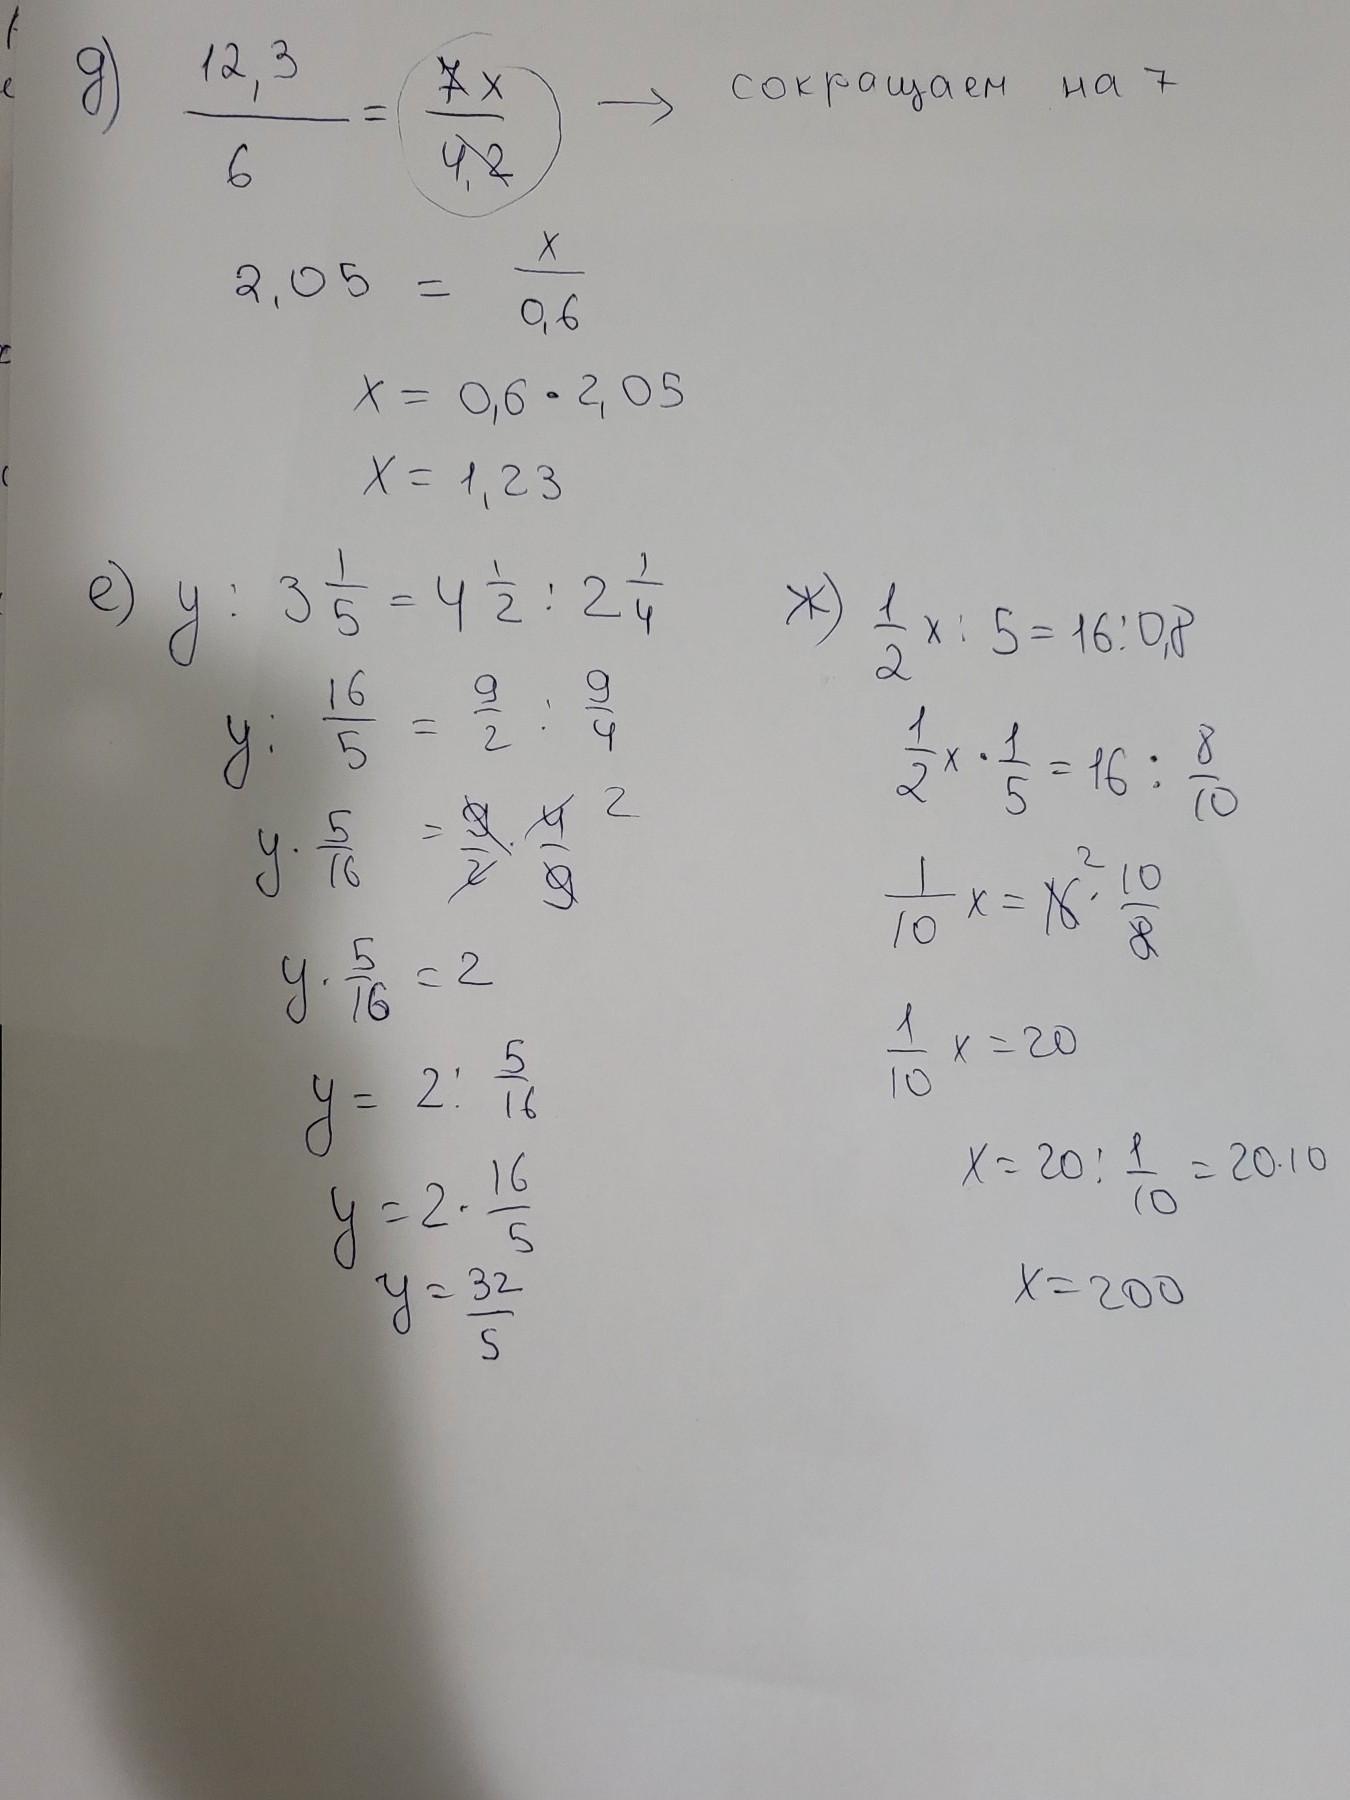 д) 12,3/6 = 7x/4,2 → сокращаем на 7
2,05 = x/0,6
x = 0,6 · 2,05
x = 1,23
е) y : 3 1/5 = 4 1/2 : 2 1/4
y : 16/5 = 9/2 : 9/4
y · 5/16 = 9/2 · 4/9 2
y · 5/16 = 2
y = 2 : 5/16
y = 2 · 16/5
y = 32/5
ж) 1/2 x : 5 = 16 : 0,8
1/2 x · 1/5 = 16 : 8/10
1/10 x = 16 2 · 10/8
1/10 x = 20
x = 20 : 1/10 = 20·10
x = 200